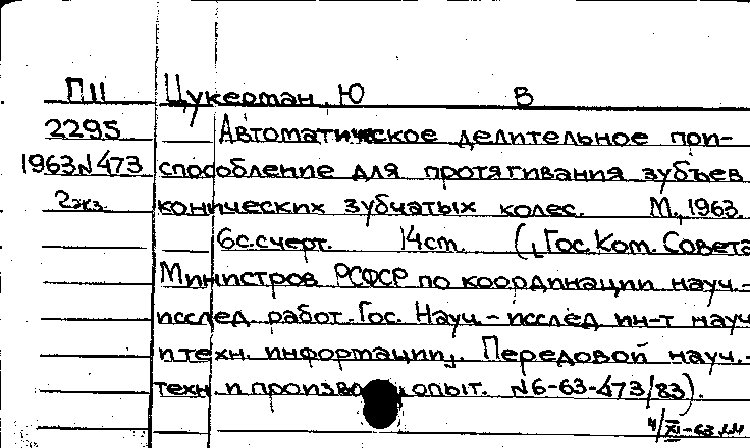 П11 Цукерман, Ю В
2295 Автоматическое делительное при-
1963 N473 способление для протягивания зубьев
2экз. конических зубчатых колес. М., 1963.
6с.счерт. 14см. ([Гос.Ком.Совета
Министров РСФСР по координации науч.-
исслед работ. Гос. Науч.-исслед ин-т науч
и техн. информации]. Передовой науч.-
техн и произво опыт. N6-63-473/83).
4/XI-63